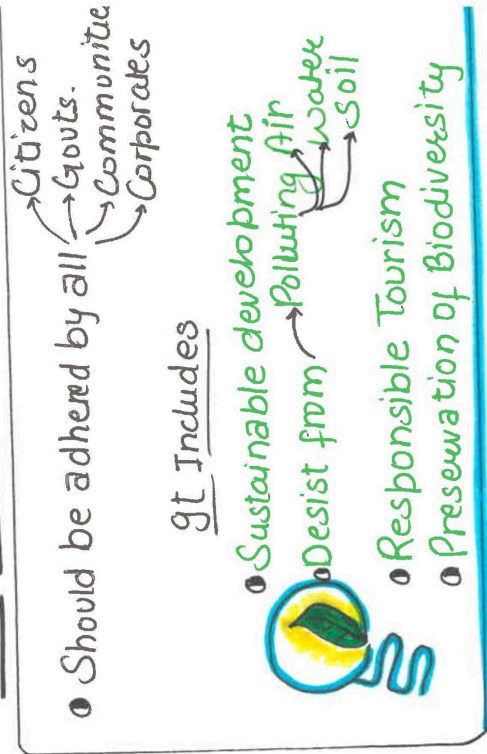 Citizens
• Should be adhered by all → Govts.
Communitie
Corporates
It Includes
• Sustainable development
• Desist from → Polluting Air
Water
Soil
• Responsible Tourism
• Preservation of Biodiversity